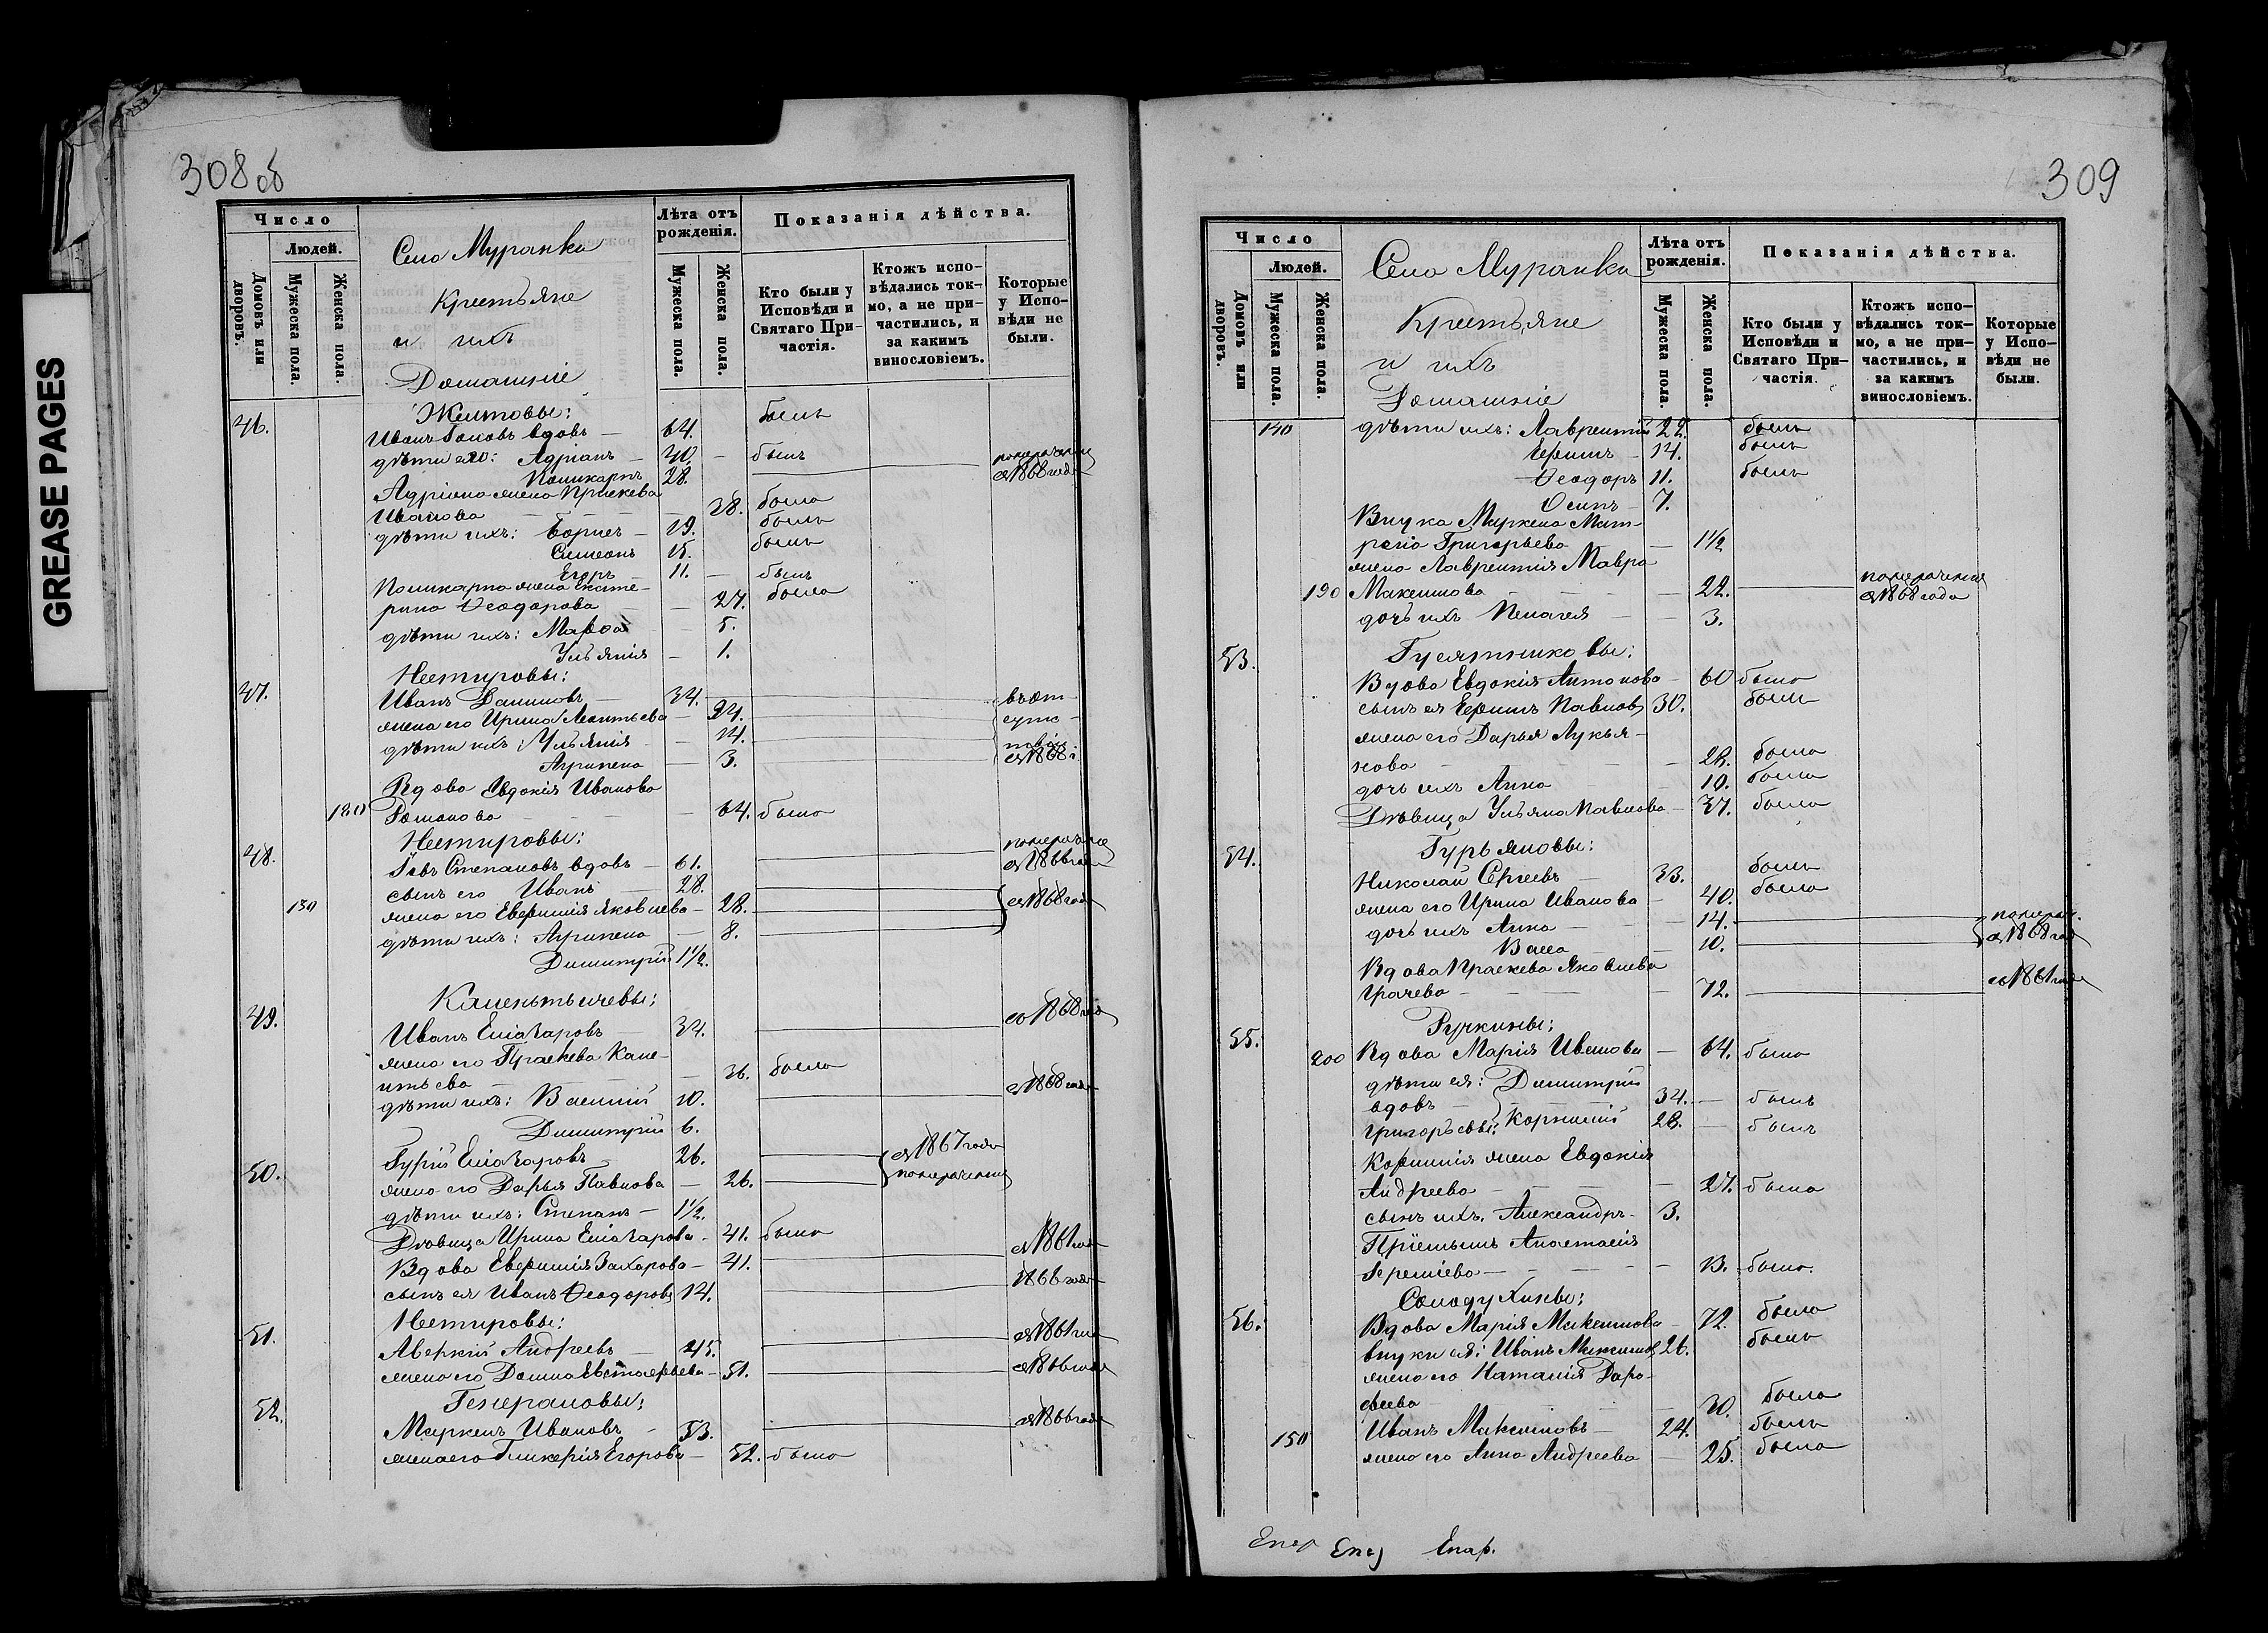 GREASE PAGES
308 об
Число
Людей.
Домовъ или дворовъ.
Мужеска пола.
Женска пола.
Село Муранка
Крестьяне
и ихъ
Домашніе
Лѣта отъ рожденія.
Мужеска пола.
Женска пола.
Показанія дѣйства.
Кто были у Исповѣди и Святаго Причастія.
Ктожъ исповѣдались токмо, а не причастились, и за какимъ винословіемъ.
Которые у Исповѣди не были.
46. Желтовы:
Иванъ вдовъ — 64. былъ
дѣти его: Адріанъ — 40. — былъ
Поликарпъ 28. съ 1868 года
Адріана жена Праскева
Иванова — 38. была
дѣти ихъ: Борисъ — 19. былъ
Симеонъ 15. былъ
Егоръ — 11. — былъ
Поликарпа жена Екате-
рина Ѳеодорова — 27. была
дѣти ихъ: Марѳа — 5.
Ульянія — 1.
47. Нестеровы:
Иванъ Даниловъ 34.
жена его Ирина Леонтьева — 34.
дѣти ихъ: Ульянія — 14.
Агрипена — 3. съ 1868 г.
Вдова Евдокія Иванова
180 Романова — 64. была
48. Нестеровы:
Степановъ вдовъ — 61. съ 1866 года
сынъ его Иванъ — 28.
130 жена его Евфимія Яковлева — 28. съ 1868 года
дѣти ихъ: Агрипена — 8.
Димитрій 1 1/2.
49.
Иванъ Еліазаровъ — 34. съ 1868 года
жена его Праскева Кале-
— 36. была
дѣти ихъ: Василій 10. съ 1868 года
Димитрій 6.
50. Гурій Еліазаровъ 26. съ 1867 года
жена его Дарья Павлова — 26.
дѣти ихъ: Степанъ — 1 1/2.
Дѣвица Ирина Еліазарова — 41. была
Вдова Евфимія Захарова — 41. съ 1861 года
сынъ ея Иванъ Ѳеодоровъ 14. 1866 года
51. Нестеровы:
Аверкій Андреевъ — 45. съ 1861 года
жена его Домна Евстафьева — 51. съ 1866 года
52. Генераловы:
Маркелъ Ивановъ — 53. съ 1866 года
жена его Гликерія Егорова — 52. была
309
Число
Людей.
Домовъ или дворовъ.
Мужеска пола.
Женска пола.
Село Муранка
Крестьяне
и ихъ
Домашніе
Лѣта отъ рожденія.
Мужеска пола.
Женска пола.
Показанія дѣйства.
Кто были у Исповѣди и Святаго Причастія.
Ктожъ исповѣдались токмо, а не причастились, и за какимъ винословіемъ.
Которые у Исповѣди не были.
140 дѣти ихъ: Лаврентій 22. былъ
Ефимъ — 14. былъ
Ѳеодоръ 11. былъ
Осипъ — 7.
Внука Маркела Мат-
рона Григорьева — 1 1/2
жена Лаврентія Мавра
190 Максимова — 22. съ 1868 года
дочь ихъ Пелагея — 3.
53. Гусятниковы:
Вдова Евдокія Антонова — 60 была
сынъ ея Ефимъ Павловъ 30. былъ
жена его Дарья Лукья-
нова — 28. была
дочь ихъ Анна — 10. была
Дѣвица Ульяна Павлова — 37. была
54. Гурьяновы:
Николай Сергеевъ — 33. былъ
жена его Ирина Иванова — 40. была
дочь ихъ Анна — 14.
Васса — 10. съ 1868 года
Вдова Праскева Яковлева
Грачева — 72. съ 1861 года
55. Ручкины:
200 Вдова Марія Иванова — 64. была
дѣти ея: Димитрій
вдовъ — 34. — былъ
Григорьевы: Корнилій 28. — былъ
Корнилія жена Евдокія
Андреева — 27. была
сынъ ихъ. Александръ — 3.
Пріемышъ Анастасія
Еремѣева — 13. была.
56. Солодухины:
Вдова Марія Максимова — 72. была
внуки ея: Иванъ Максимовъ 26. былъ
жена его Наталія Доро-
феева — 30. была
150 Иванъ Максимовъ — 24. былъ
жена его Анна Андреева — 25. была
Епар.